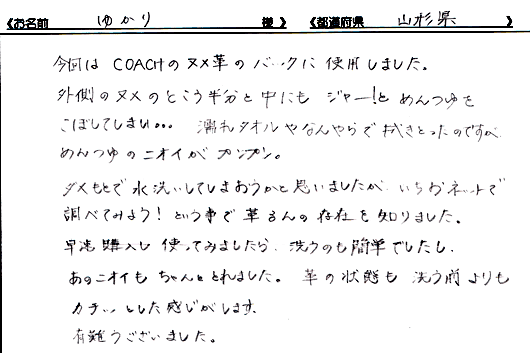 《お名前 ゆかり 様》 《都道府県 山形県 》
今回は COACHの ヌメ革の バックに 使用しました。
外側の ヌメの とこう半分と 中にも ジャー!と めんつゆを
こぼしてしまい… 濡れタオルやなんやらで 拭きとったのですが、
めんつゆの ニオイが プンプン。
ダメもとで 水洗いしてしまおうかと思いましたが、いちおネットで
調べてみよう!という事で 革るんの 存在を 知りました。
早速 購入し 使ってみましたら、洗うのも 簡単でしたし、
あのニオイも ちゃんと とれました。 革の 状態も 洗う前よりも
カチッ とした 感じがします。
有難うございました。